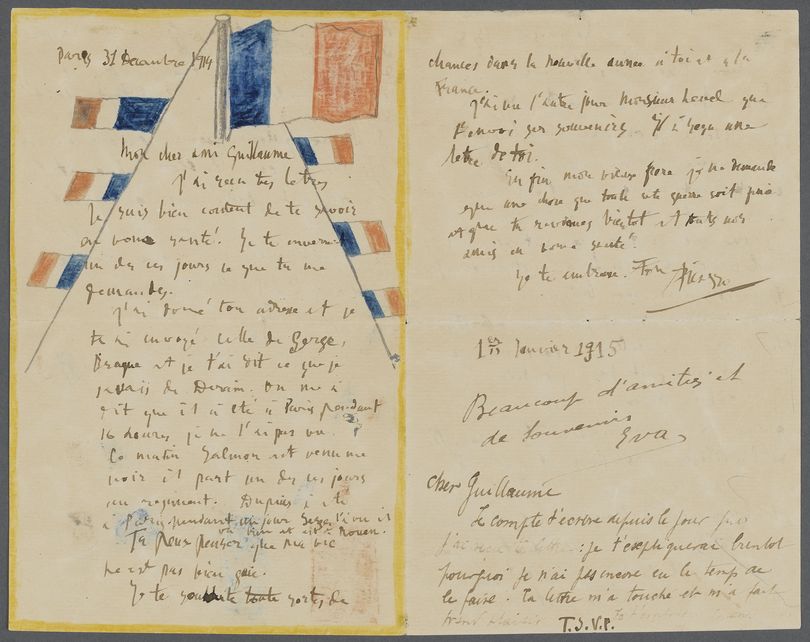 Paris 31 Decembre 1914
Mon cher ami Guillaume
J'ai reçu tes letres
Je suis bien content de te savoir
en bonne santé. Je te enverrai
un des ces jours ce que tu me
demandes.
J'ai doné ton adrese et je
te ai envoyé celle de Gerge,
Braque et je t'ai dit ce que je
savais de Derain. On me a
dit que il a été a Paris pendant
16 houres, je ne l'ai pas vu.
Ce matin Salmon est venu me
voir il part un des ces jours
au regiment. Dupuis a été
a Paris pendant un jour Serge l'a vu il
va bien et est à Rouen.
Tu peux penser que ma vie
ne est pas bien gaie.
Je te souhaite toute sortes de
chances dans la nouvelle annee a toi et a la
France.
J'ai vu l'autre jour Monsieur Level que
t'envoi ses souvenirs. Il a reçu une
letre de toi.
En fin mon vieux frere je ne demande
que une chose que toute cete guerre soit finie
et que tu reviennes bientot et touts nos
amis en bone santé.
Je te embrase. Ton Picasso
1er Janvier 1915
Beaucoup d'amities et
de Souvenirs
Eva
cher Guillaume
Je compte t'ecrire depuis le jour
j'ai : je t'expliquerai bientot
pourquoi je n'ai pas encore eu le temps de
le faire. Ta lettre m'a touché et m'a fait
T.S.V.P.